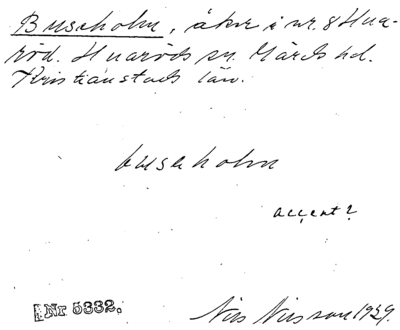 Buseholm, åker i nr. 8 Hua-
röd. Huaröds sn. Gärds hd.
Kristianstads län.
buseholm
accent?
Nr 5332.
Nils Nilsson 1929.